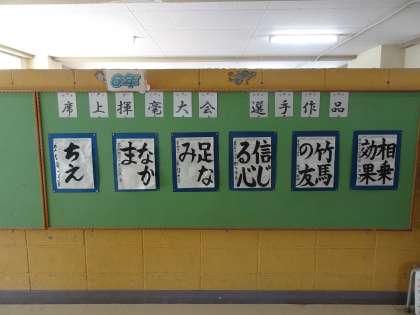 席上揮毫大会 選手作品
ちえ
なか
ま
足な
み
信じ
る心
竹馬
の友
相乗
効果